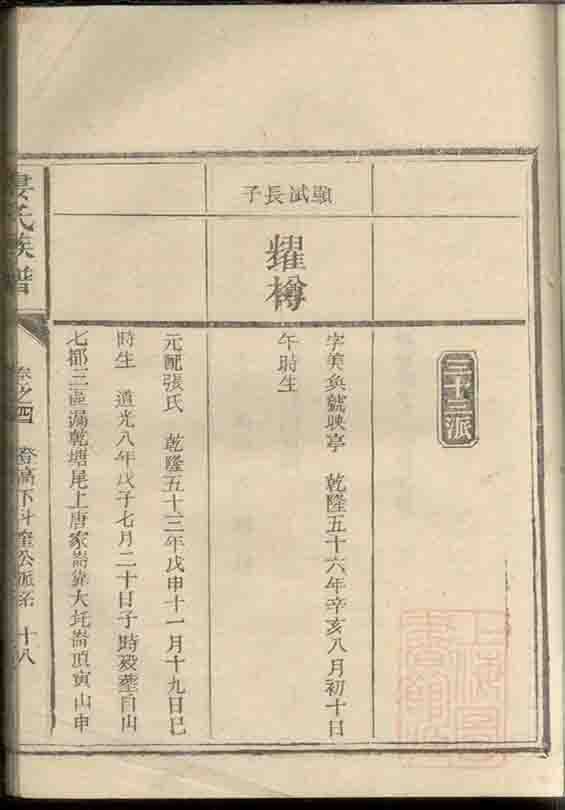 三十三派
顯斌長子
耀樽
字美奐號映亭 乾隆五十六年辛亥八月初十日
午時生
元配張氏 乾隆五十三年戊申十一月十九日巳
時生 道光八年戊子七月二十日子時歿塟自山
七都三區漏乾塘尾上唐家崙靠大圫崙頂寅山申
婁氏族譜
卷之四 登高下斗奎公派系 十八